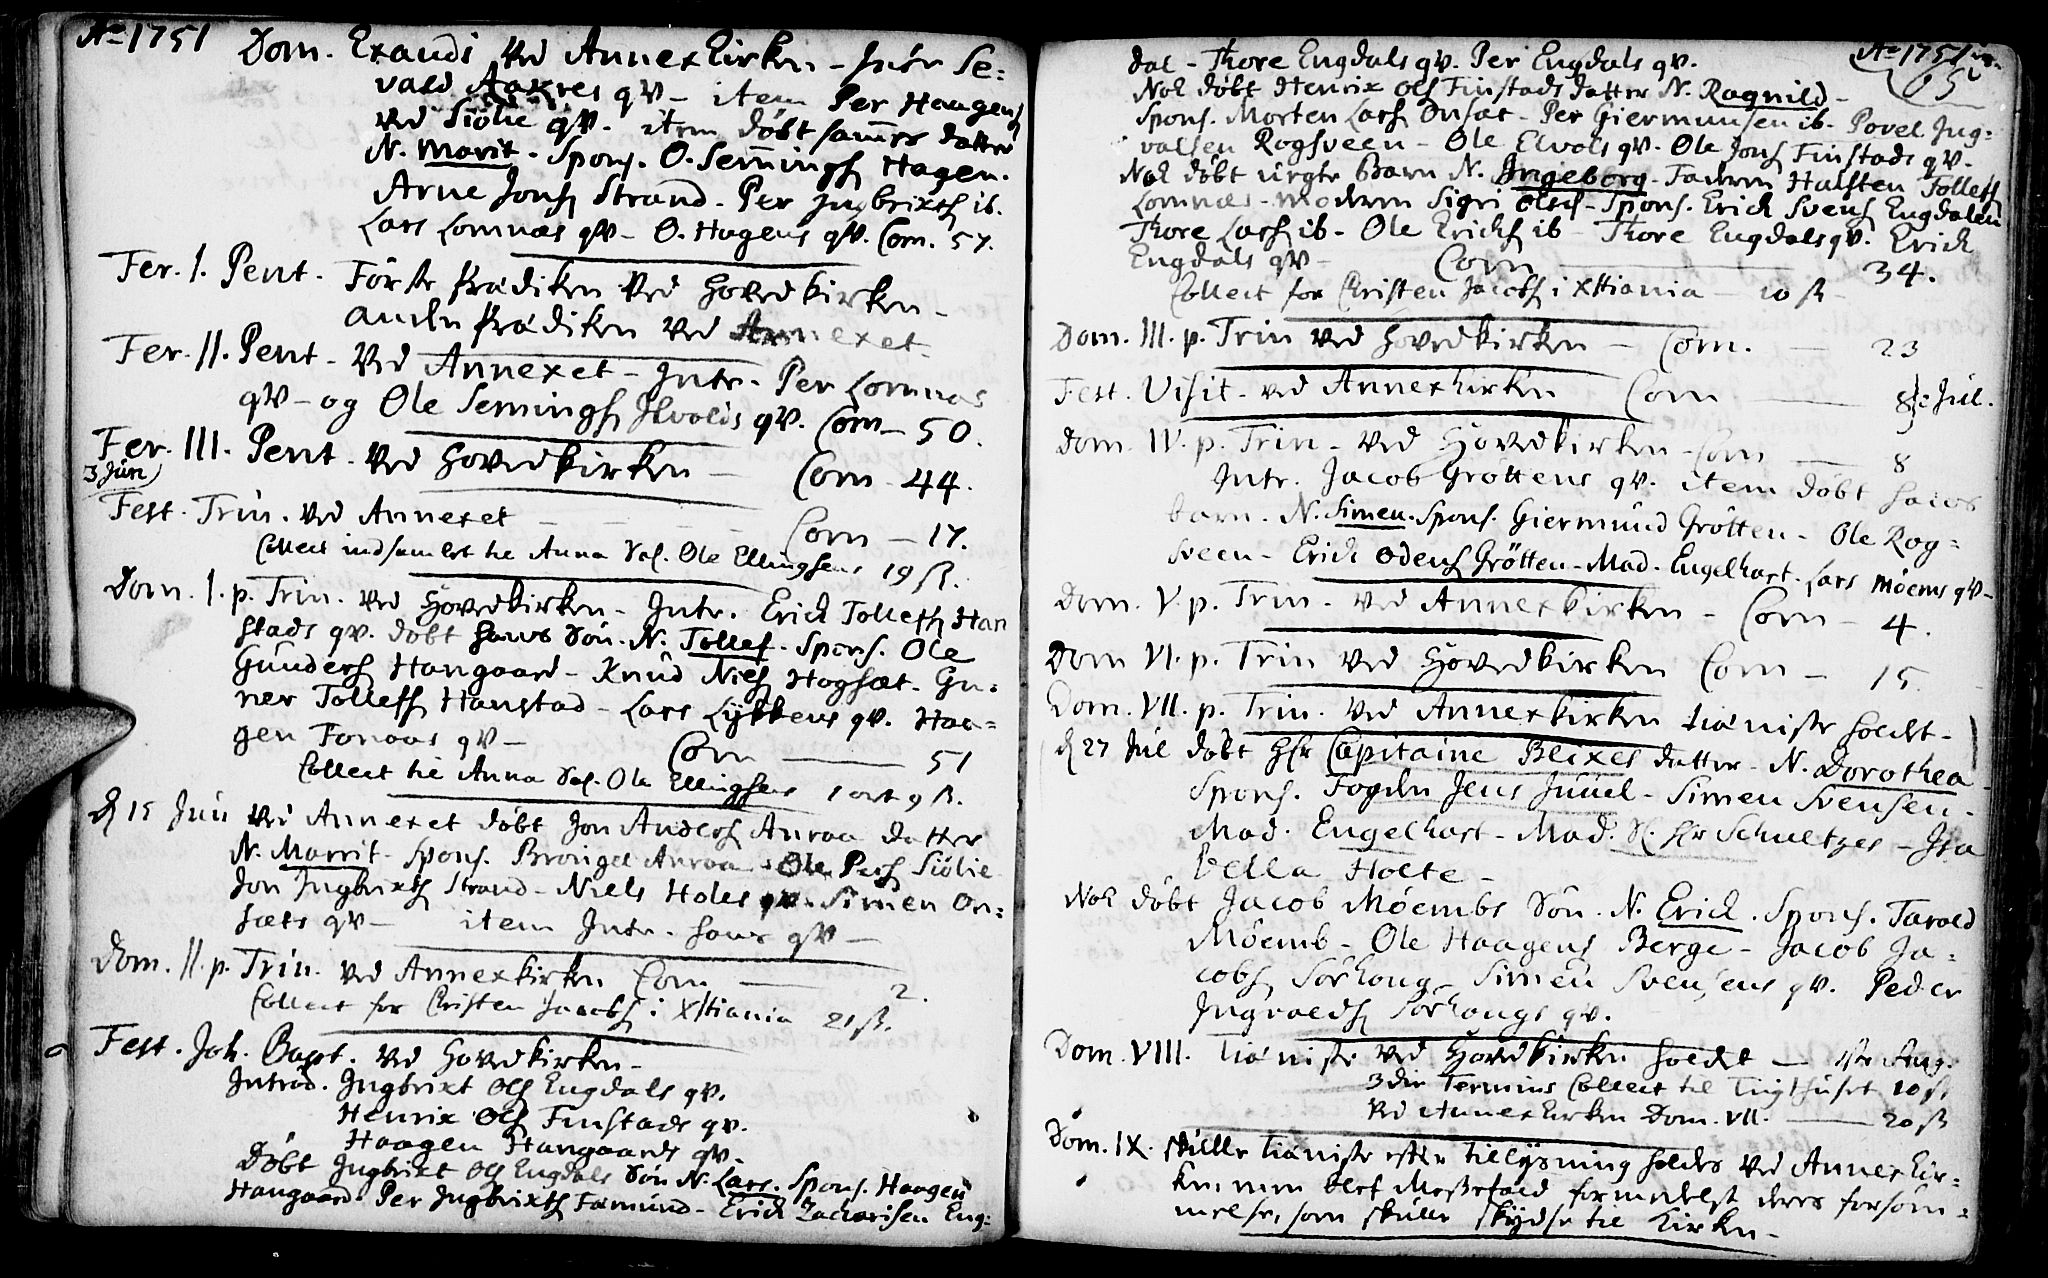 Ao 1751
Dom. Exaudi ved Annexkirken - Intr. Se=
vald Aakres qv - item Per Haagens
ved Siölie qv. item döbt sammes datter
N. Marit. Spons. O. Semmings Hagen.
Arne Jons Strand - Per Ingbrixts ib.
Lars Lomnæs qv - O. Hagens qv. Com. 57.
Fer. I. Pent. Förste Prædiken ved Hovedkirken -
anden Prædiken ved Annexet
Fer. II. Pent - ved Annexet - Intr. Per Lomnæs
qv - og Ole Semings qv. Com - 50.
Fer. III. Pent. ved Hovedkirken - Com - 44.
3 Jun
Fest. Trin. ved Annexet - Com - 17.
Collect indsamlet til Anna Sal. Ole Ellingsens 19 ß.
Dom. I. p. Trin. ved Hovedkirken - Intr. Erick Tollefs Han
stads qv. döbt hans Sön. N. Tollef. Spons. Ole
Gunders Hangaard - Knud Niels Hogsæt - Gu=
ner Tollefs Hanstad - Lars Lykkens qv. Haa=
gen Fonaas qv -
Com - 51
Collect til Anna Sal. Ole Ellingsens 1 ort 9 ß.
d 15 Jun ved Annexet döbt Jon Anders Anraa datter
N. Marrit - Spons. Anraa - Ole Pers Siölie
Jon Ingbrixts Strand - Niels Holes qv. Simen On=
sæts qv - item Intr. hans qv -
Dom. II. p. Trin. ved Annexkirken Com - 2.
Collect for Christen Jacobs i Xstiania 21 ß.
Fest. Joh. Bapt. ved Hovedkirken -
Introd. Ingbrixt Ols Engdals qv.
Henrix Ols Finstads qv.
Haagen Hangaards qv.
Döbt Ingbrixt Ols Engdals Sön N. Lars. Spons. Haagen
Hangaard - Per Ingbrixts Fæmund - Erick Zacharisen Eng=
Ao 1751
65
dal - Thore Engdals qv. Per Engdals qv.
Nok döbt Henrix Ols Finstads datter N. Ragnild -
Spons. Morten Lars Onsæt - Per Giermunsen ib. Povel Ing=
valsen Rogsveen - Ole Elvals qv. Ole Jons Finstads qv.
Nok döbt uægte Barn N. Ingeborg - Faderen Halsten Tollefs
Lomnæs - Moderen Sigri - Spons. Erick Svens Engdalen
Thore Lars ib - Ole Ericks ib - Thore Engdals qv. Erick
Engdals qv - Com - 34.
Collect for Christen Jacobs i Xstiania - 20 ß
Dom. III. p. Trin ved Hovedkirken - Com. - 23
Fest. Visit. ved Annexkirken Com - 8 Jul.
Dom. IV. p. Trin - ved Hovedkirken - Com - 8
Intr. Jacob Gröttens qv. item döbt Jacobs
barn. N. Simen. Spons. Giermund Grötten - Ole Rog=
sveen - Erick Odens Grötten - Mad. Engelhart - Lars Möems qv -
Dom. V. p. Trin - ved Annexkirken - Com - 4.
Dom VI. p. Trin ved Hovedkirken Com - 15.
Dom. VII. p. Trin. ved Annexkirken tieniste holdt -
d 27 Jul döbt Hr Capitaine Blixes datter - N. Dorothea -
Spons. Fogden Jens Juuel - Simen Svensen -
Mad. Engelhart - Mad. Sl. Hr Schultzes - Isa
bella Holte -
Nok döbt Jacob Möembs Sön. N. Erick. Spons. Tarald
Möemb - Ole Haagens Berge - Jacob Ja=
cobs Sörhong - Simen Svensens qv. Peder
Ingvalds Sörhongs qv.
Dom. VIII. tieniste ved Hovedkirken holdt - 1ste Aug.
3die Termins Collect til Tugthuset 10 ß
ved Annexkirken Dom. VII. - 20 ß
Dom. IX. skulle tieniste efter tillysning holdes ved Annexkir=
ken, men blef Messefald formedelst deres forsöm=
melse, som skulle skydse til Kirken -